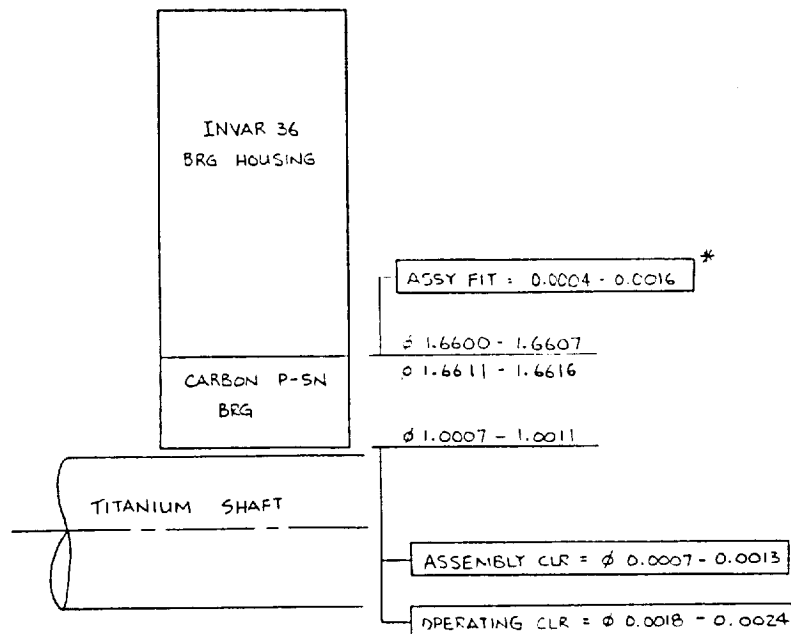 INVAR 36
BRG HOUSING
ASSY FIT = 0.0004 - 0.0016 *
ø 1.6600 - 1.6607
ø 1.6611 - 1.6616
CARBON P-5N
BRG
ø 1.0007 - 1.0011
TITANIUM SHAFT
ASSEMBLY CLR = ø 0.0007 - 0.0013
OPERATING CLR = ø 0.0018 - 0.0024